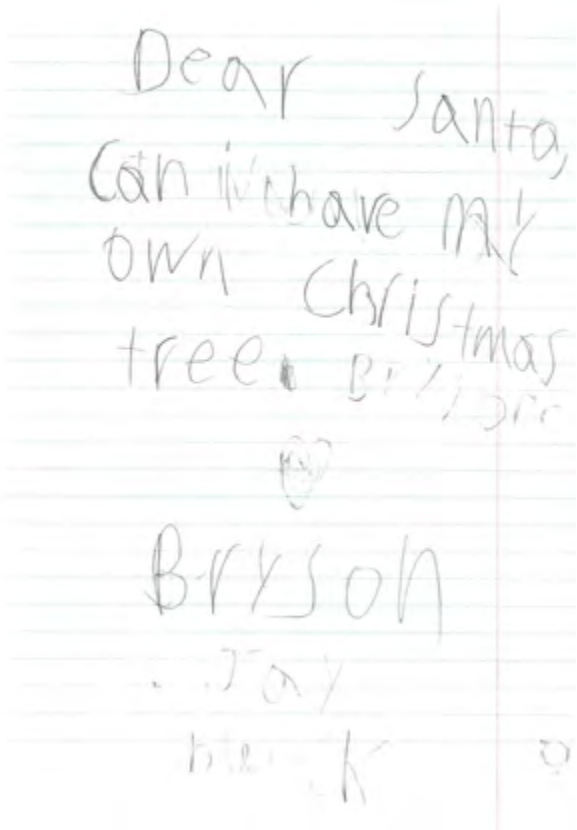 Dear Santa,
Can i have my
own Christmas
tree.
Bryson
Jay